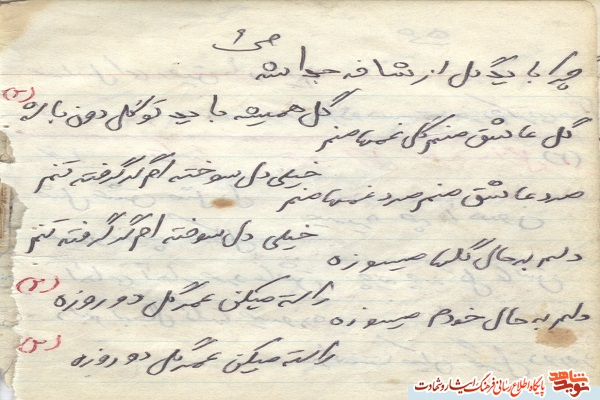 چرا باید گل از شاخه جدا شه
گل همیشه باید تو گلدون باشه (۲)
گل عاشق منم گل غمها منم
خیلی دل سوخته ام گر گرفته تنم
مرد عاشق منم مرد غمها منم
خیلی دل سوخته ام گر گرفته تنم
دلم به حال گلها میسوزه
راسته میگن عمر گل دو روزه (۲)
دلم به حال خودم میسوزه
راسته میگن عمر گل دو روزه (۲)
نوید شاهد
پایگاه اطلاع رسانی فرهنگ ایثار و شهادت